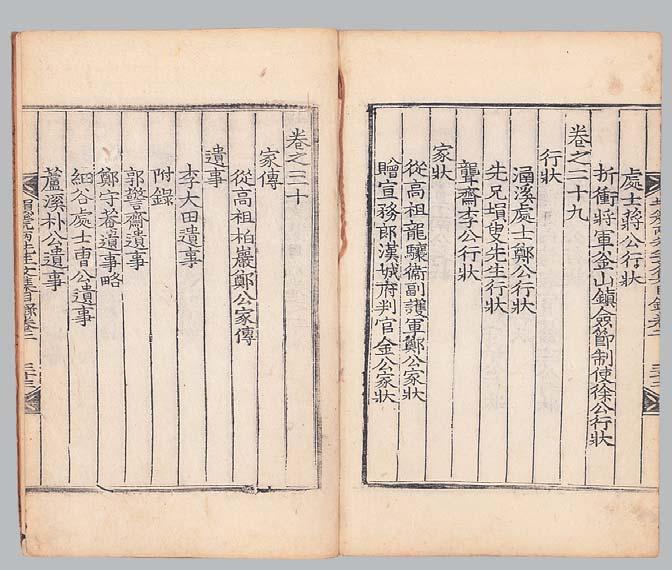 處士蔣公行狀
折衝將軍釜山鎭僉節制使徐公行狀
卷之二十九
行狀
涵溪處士鄭公行狀
先兄塤叟先生行狀
聾齋李公行狀
家狀
從高祖龍驤衛副護軍鄭公家狀
贈宣務郎漢城府判官金公家狀
卷之三十
家傳
從高祖柏巖鄭公家傳
遺事
李大田遺事
附錄
郭警齋遺事
鄭守菴遺事略
谷處士曺公遺事
蘆溪朴公遺事
兩先生文集目錄卷二 三十三